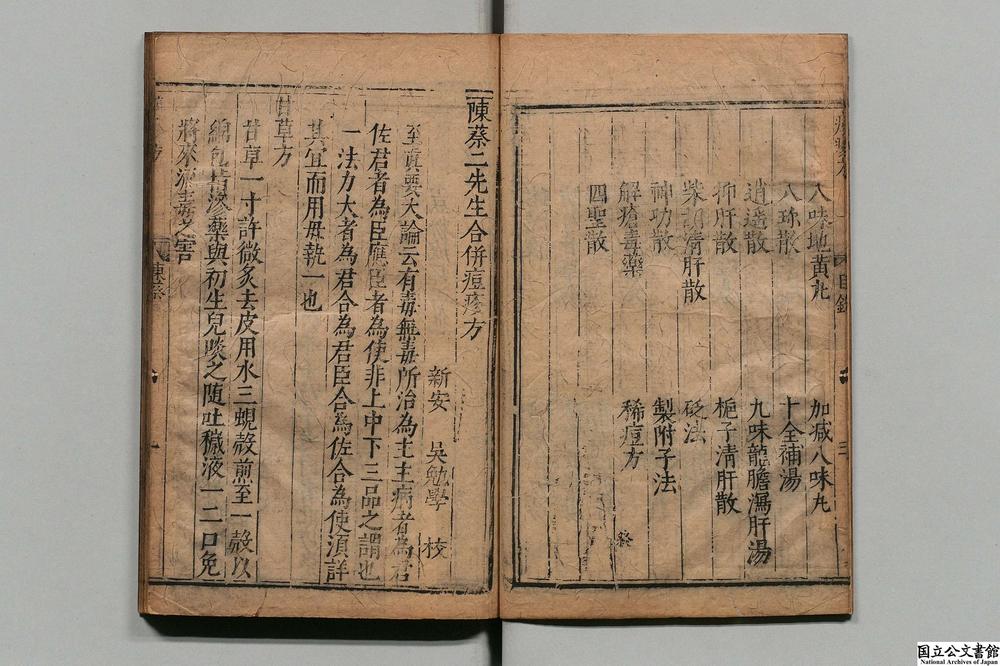 八味地黃丸　加減八味丸
八珎散　十全補湯
逍遥散　九味龍膽瀉肝湯
抑肝散　梔子清肝散
柴胡清肝散　砭法
神功散　製附子法
解瘡毒藥　稀痘方
四聖散
終
目錄
三
陳蔡二先生合併痘疹方
新安　吳勉學　校
至眞要大論云有毒無毒所治為主主病者為君
佐君者為臣應臣者為使非上中下三品之謂也
一法力大者為君合為君臣合為佐合為使湏詳
其宜而用毋執一也
甘草方
甘草一寸許微炙去皮用水三蜆殼煎至一殼以
綿包蘸藥與初生兒啖之随吐穢液一二口免
將來痘毒之害
陳蔡
一
国立公文書館
National Archives of Japan